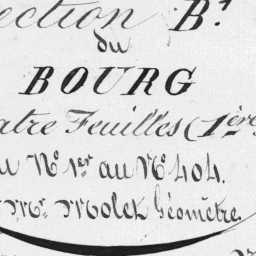 ection B.t
du
BOURG
atre Feuilles (1ère
u No. 1er au No. 404.
Mr. Molek Géomètre.